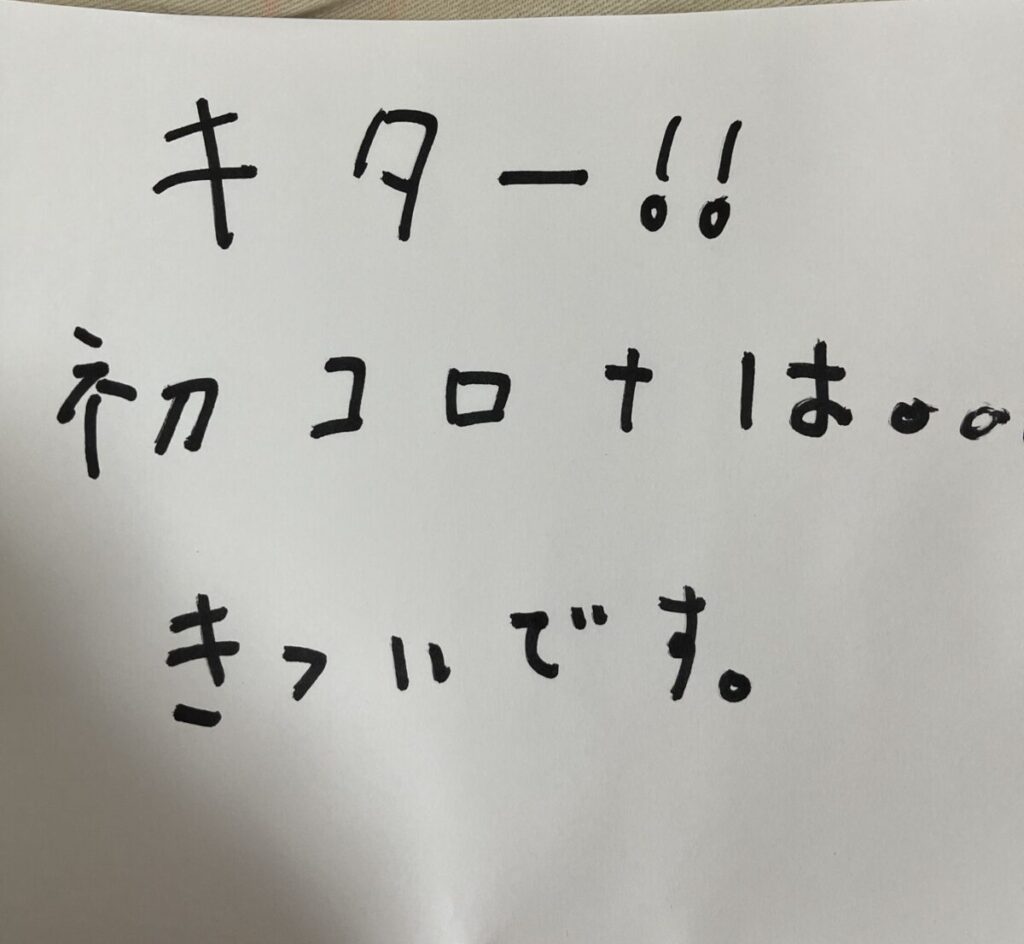 キター!!
初コロナは。。。
きついです。